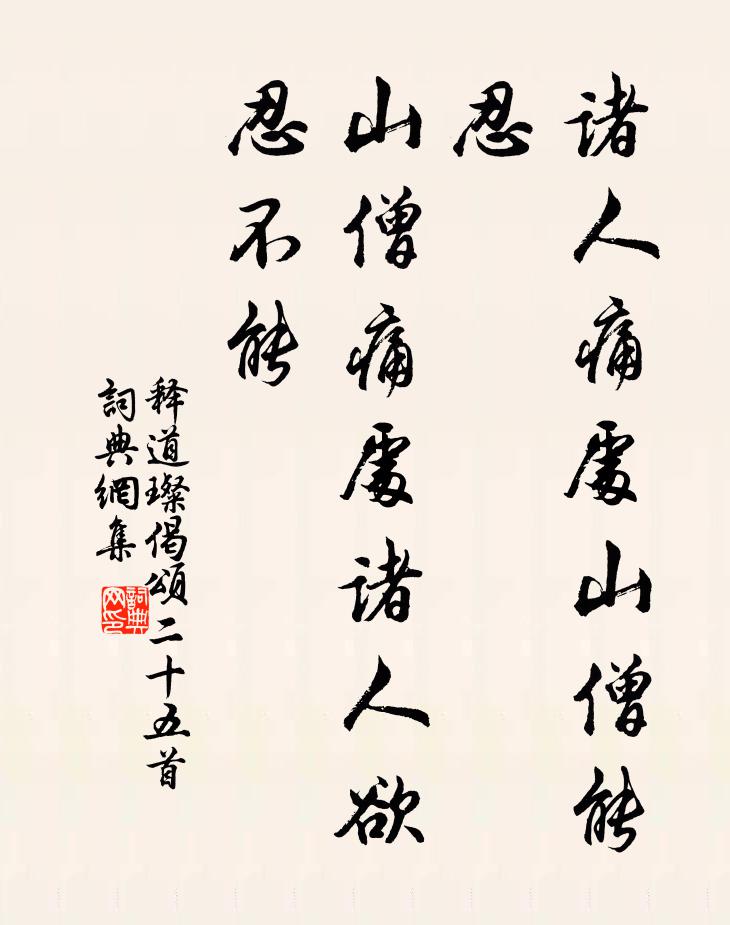 諸人痛處山僧能
忍
山僧痛處諸人欲
忍不能
释道璨偈頌二十五首
詞典網集
詞典
网印